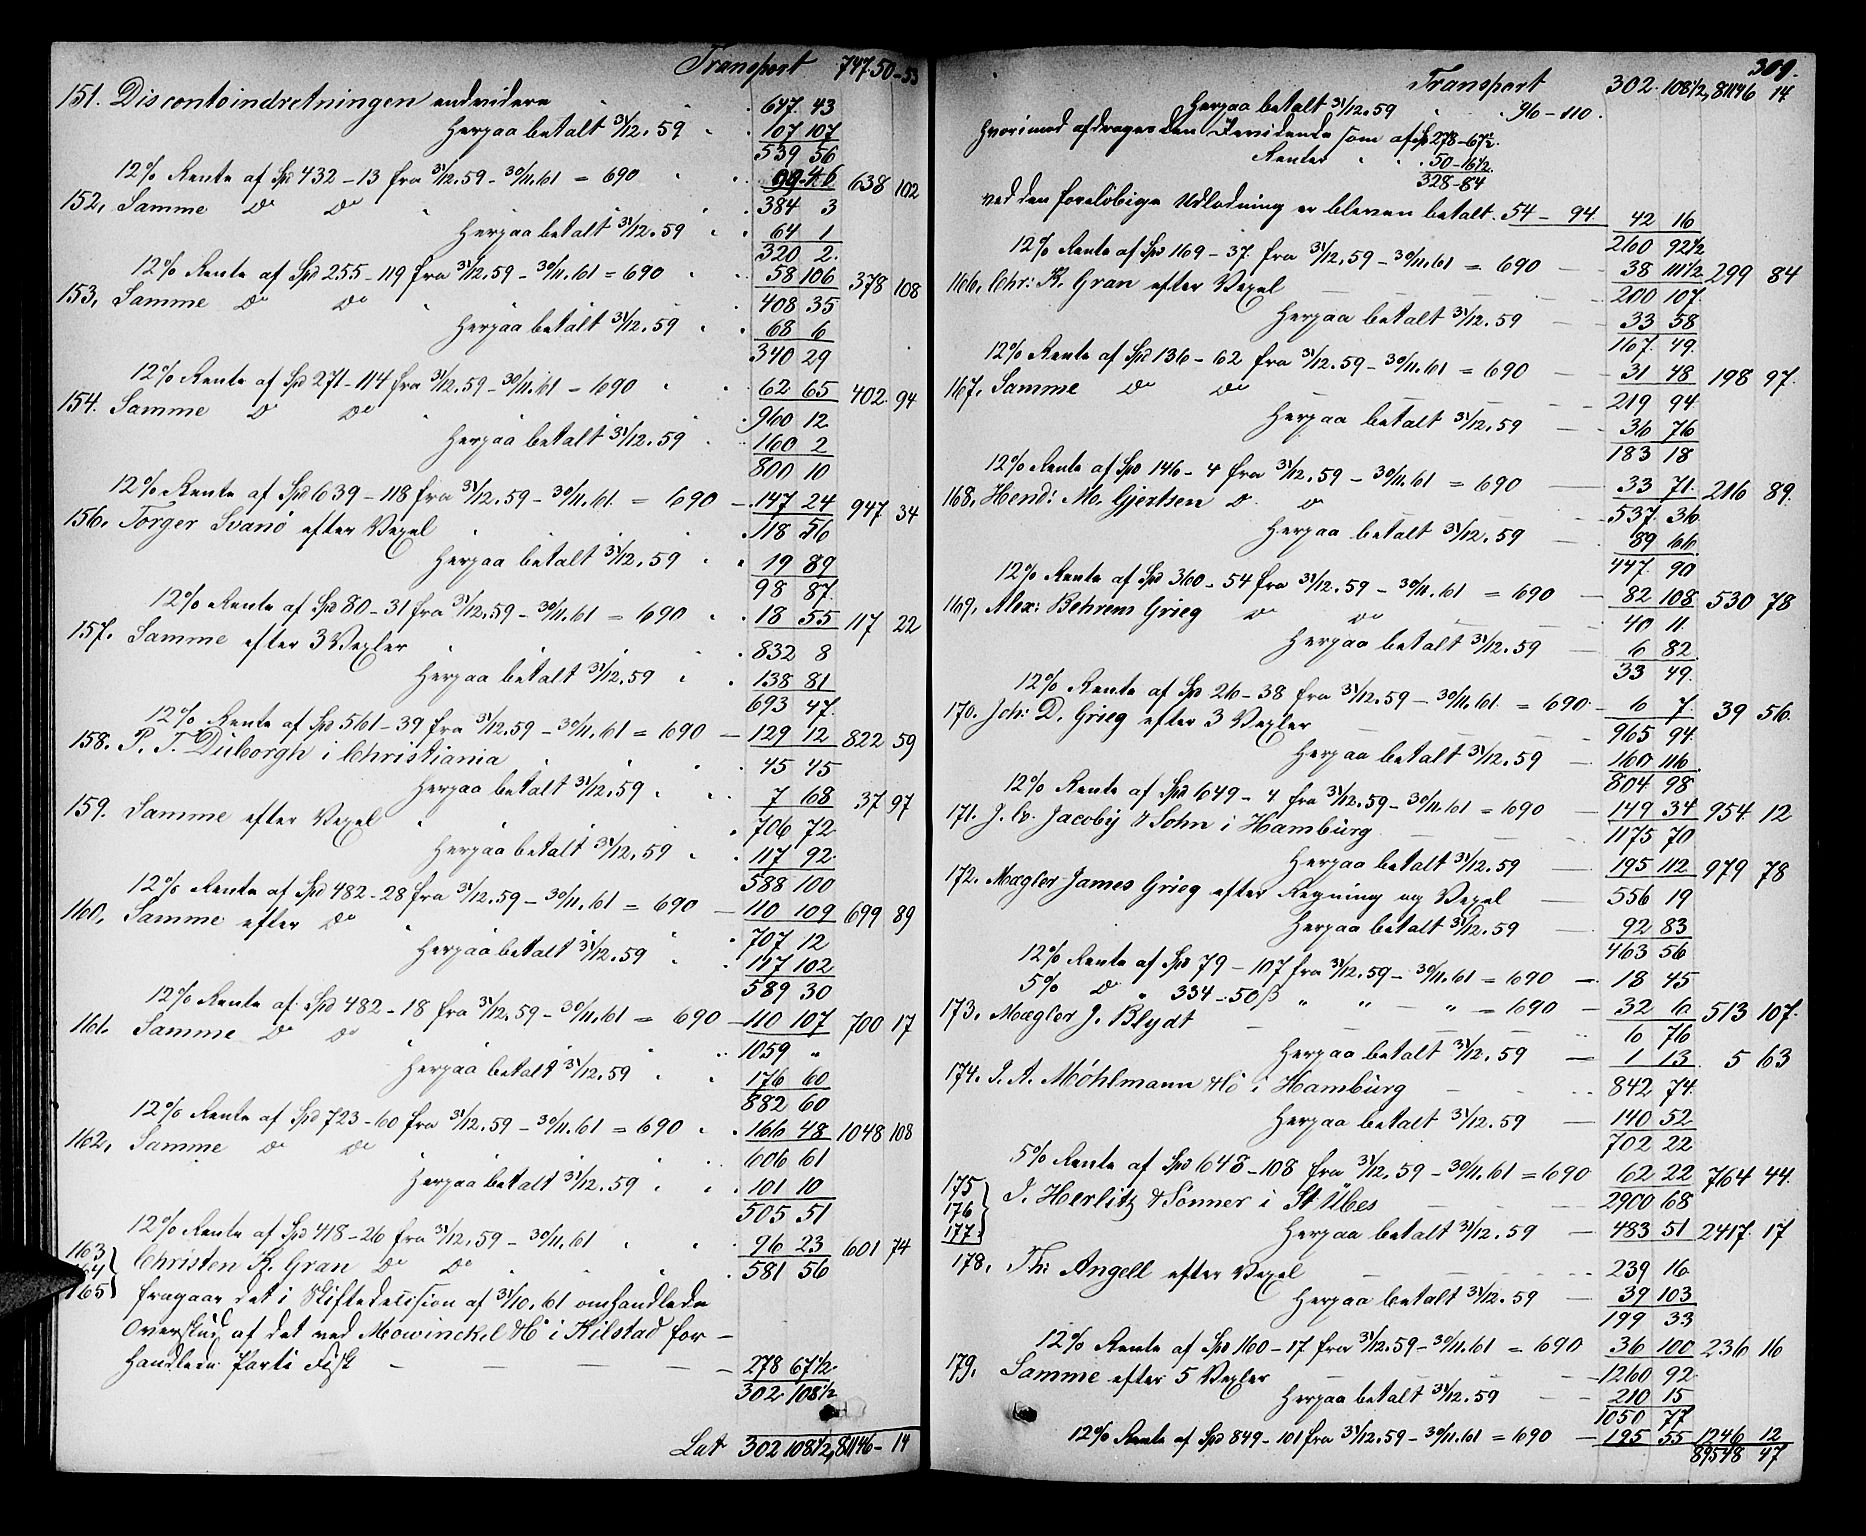 Transport 74750-53
151. Discontoindretningen endvidere 647. 43
Herpaa betalt 31/12. 59 107 107
539 56
12% Rente af Spd 432-13 fra 31/12.59-30/11.61 = 690 99-46 638 102
152, Samme Do Do 384 3
Herpaa betalt 31/12. 59 64 1
320 2.
12% Rente af Spd 255-119 fra 31/12.59-30/11.61 = 690 58 106 378 108
153, Samme Do Do 408 35
Herpaa betalt 31/12. 59 68 6
340 29
12% Rente af Spd 271-114 fra 31/12.59-30/11.61 = 690 62 65 402. 94
154. Samme Do Do 960 12
Herpaa betalt 31/12. 59 160 2
800 10
12% Rente af Spd 639-118 fra 31/12.59-30/11.61 = 690 147 24 947 34
156. Torger Svanö efter Vexel 118 56
Herpaa betalt 31/12. 59 19 89
98 87.
12% Rente af Spd 80-31 fra 31/12.59-30/11.61 = 690 18 55 117 22
157. Samme efter 3 Vexler 832 8
Herpaa betalt 31/12. 59 138 81
693 47.
12% Rente af Spd 561-39 fra 31/12.59-30/11.61 = 690 129 12 822 59
158. P. T. Duborgh i Christiania 45 45
Herpaa betalt 31/12. 59 7 68 37 97
159. Samme efter Vexel 706 72
Herpaa betalt 31/12. 59 117 92.
588 100
12% Rente af Spd 482-28 fra 31/12.59-30/11.61 = 690 110 109 699 89
160, Samme efter Do 707 12
Herpaa betalt 31/12. 59 117 102
589 30
12% Rente af Spd 482-18 fra 31/12.59-30/11.61 = 690 110 107 700 17
161. Samme Do Do 1059 "
Herpaa betalt 31/12. 59 176 60
882 60
12% Rente af Spd 723-60 fra 31/12.59-30/11.61 = 690 166 48 1048 108
162, Samme Do Do 606 61
Herpaa betalt 31/12. 59 101 10
505 51
12% Rente af Spd 418-26 fra 31/12.59-30/11.61 96 23 601 74
163 164 165 Christen K. Gran Do Do 581 56
fragaar det i Skiftedecision af 31/10.61 omhandlede
Overskud af det ved Mowinckel & Co i Kilstad for-
handlede Parti Fisk 278 67½
302 108½
Lat 302 108½, 81146-14
309.
Transport 302. 108½, 81146 14
Herpaa betalt 31/12.59 96-110.
hvorimod afdrages den Dividende som af Spd 278-67½.
Renter 50-16½.
328-84
ved den foreløbige Udlodning er bleven betalt. 54-94. 42 16
260 92½
12% Rente af Spd 169-37. fra 31/12.59-30/11.61 = 690 38 111½ 299 84
166, Chr: K. Gran efter Vexel 200 107.
Herpaa betalt 31/12. 59 33 58
167. 49.
12% Rente af Spd 136-62 fra 31/12.59-30/11.61 = 690 31 48 198 97.
167, Samme Do Do 219 94.
Herpaa betalt 31/12. 59 36 76
183 18
12% Rente af Spd 146-4 fra 31/12.59-30/11.61 = 690 33 71. 216 89.
168, Hend: M. Gjertsen Do Do 537. 36
Herpaa betalt 31/12. 59 89 66
447. 90
12% Rente af Spd 360-54 fra 31/12.59-30/11.61 = 690 82 108 530 78
169, Alex: Behrens Grieg Do Do 40 11.
Herpaa betalt 31/12. 59 6 82
33 49.
12% Rente af Spd 26-38 fra 31/12.59-30/11.61 = 690 6 7. 39 56.
170. Joh: D. Grieg efter 3 Vexler 965 94.
Herpaa betalt 31/12. 59 160 116
804 98
12% Rente af Spd 649-4 fra 31/12.59-30/11.61 = 690 149 34 954 12
171. J. C. Jacoby & Sohn i Hamburg 1175 70
Herpaa betalt 31/12. 59 195 112 979 78
172. Mægler James Grieg efter Regning og Vexel 556 19
Herpaa betalt 31/12. 59 92 83
463 56
12% Rente af Spd 79-107 fra 31/12.59-30/11.61 = 690 18 45
5% Do " 334-50 ß " " " = 690 32 6 513 107.
173. Mægler J. Blydt 6 76
Herpaa betalt 31/12. 59 1 13. 5 63
174. J. A. Möhlmann & Co i Hamburg 842 74.
Herpaa betalt 31/12. 59 140 52
702 22
5% Rente af Spd 648-108 fra 31/12.59-30/11.61 = 690 62 22 764 44.
175 176 177. J. Herlitz & Sönner i St Übes 2900 68
Herpaa betalt 31/12. 59 483 51 2417. 17
178, Th: Angell efter Vexel 239 16.
Herpaa betalt 31/12. 59 39 103
199 33
12% Rente af Spd 160-17 fra 31/12.59-30/11.61 = 690 36 100 236 16
179. Samme efter 5 Vexler 1260 92.
Herpaa betalt 31/12. 59 210 15
1050 77
12% Rente af Spd 849-101 fra 31/12.59-30/11.61 = 690 195 55 1246 12
89548 47